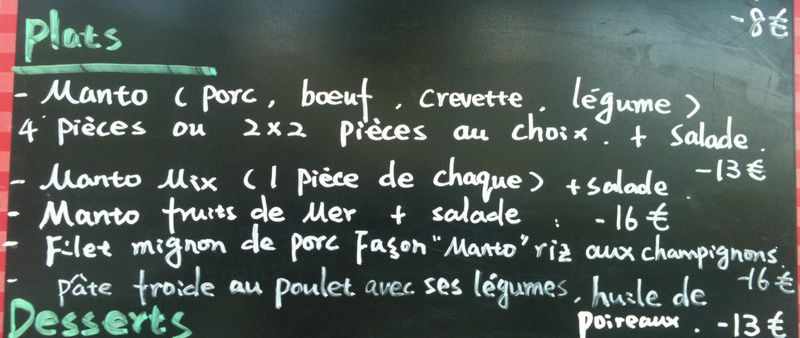 -8€
Plats
- Manto (porc, boeuf, crevette, légume)
4 pièces ou 2x2 pièces au choix. + salade.
- Manto Mix (1 pièce de chaque) + salade -13€
- Manto fruits de Mer + salade : -16€
- Filet mignon de porc Façon "Manto" riz aux champignons
-16€
- pâte froide au poulet avec ses légumes, huile de
poireaux. -13€
Desserts